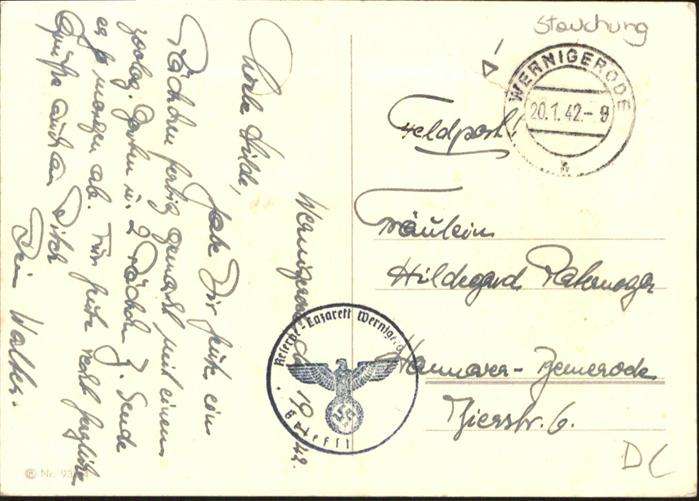 Stauchung
WERNIGERODE
20.1.42.-9
Feldpost!
Fräulein
Hildegard
Hannover-Bemerode
Thierstr. 6.
DC
Reserve-Lazarett Wernigerode
Wernigerode, 19. 42.
Liebe Hilde,
habe Dir heute ein
Päckchen fertig gemacht mit einem
zoolog. Garten u. 2 Päckchen Z. Sende
es morgen ab. Für heute recht herzliche
Grüße auch an
Dein Walter.
© Nr. 93